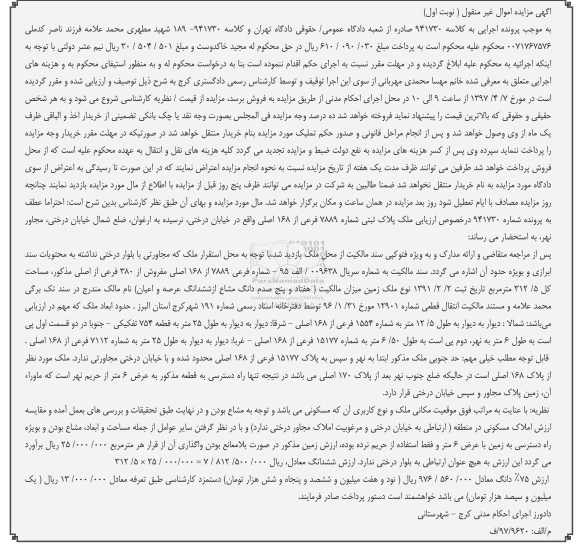 آگهی مزایده اموال غیر منقول ( نوبت اول)
به موجب پرونده اجرایی به کلاسه ۹۴۱۷۳۰ صادره از شعبه دادگاه عمومی/ حقوقی دادگاه تهران و کلاسه ۹۴۱۷۳۰- ۱۸۹ شهید مطهری محمد علامه فرزند ناصر کدملی
۰۰۷۱۷۶۷۵۷۶ محکوم علیه محکوم است به پرداخت مبلغ ۰۳۰/ ۰۹۰ / ۶۱۰ ریال در حق محکوم له مجید خاکدوست و مبلغ ۵۰۱ / ۵۰۴ / ۳۰ ریال نیم عشر دولتی با توجه به
اینکه اجرائیه به محکوم علیه ابلاغ گردیده و در مهلت مقرر نسبت به اجرای حکم اقدام ننموده است بنا به درخواست محکوم له و به منظور استیفای محکوم به و هزینه های
اجرایی متعلق به معرفی شده خانم مهسا محمدی مهربانی از سوی این اجرا توقیف و توسط کارشناس رسمی دادگستری کرج به شرح ذیل توصیف و ارزیابی شده و مقرر گردیده
است در مورخ ۷/ ۴/ ۱۳۹۷ از ساعت ۹ الی ۱۰ در محل اجرای احکام مدنی از طریق مزایده به فروش برسد، مزایده از قیمت / نظریه کارشناسی شروع می شود و به هر شخص
حقیقی و حقوقی که بالاترین قیمت را پیشنهاد نماید فروخته خواهد شد ده درصد وجه مزایده فی المجلس بصورت وجه نقد یا چک بانکی تضمینی از خریدار اخذ و الباقی ظرف
یک ماه از وی وصول خواهد شد و پس از انجام مراحل قانونی و صدور حکم تملیک مورد مزایده بنام خریدار منتقل خواهد شد در صورتیکه در مهلت مقرر خریدار وجه مزایده
را پرداخت ننماید سپرده وی پس از کسر هزینه های مزایده به نفع دولت ضبط و مزایده تجدید می گردد کلیه هزینه های نقل و انتقال به عهده محکوم علیه است که از محل
فروش پرداخت خواهد شد طرفین می توانند ظرف مدت یک هفته از تاریخ مزایده نسبت به نحوه انجام مزایده اعتراض نمایند که در این صورت تا رسیدگی به اعتراض از سوی
دادگاه مورد مزایده به نام خریدار منتقل نخواهد شد ضمنا طالبین به شرکت در مزایده می توانند ظرف پنج روز قبل از مزایده با اطلاع از مال مورد مزایده بازدید نمایند چنانچه
روز مزایده مصادف با ایام تعطیل شود روز بعد مزایده در همان ساعت و مکان برگزار خواهد شد. مال مورد مزایده و بهای آن طبق نظر کارشناس بدین شرح است: احتراما عطف
به پرونده شماره ۹۴۱۷۳۰ درخصوص ارزیابی ملک پلاک ثبتی شماره ۷۸۸۹ فرعی از ۱۶۸ اصلی واقع در خیابان درختی، نرسیده به ارغوان، ضلع شمال خیابان درختی، مجاور
نهر، به استحضار می رساند:
پس از مراجعه متقاضی و ارائه مدارک و به ویژه فتوکپی سند مالکیت از محل ملک بازدید شد.با توجه به محل استقرار ملک که مجاورتی با بلوار درختی نداشته به محتویات سند
ابرازی و بویژه حدود آن اشاره می گردد. سند مالکیت به شماره سریال ۰۰۹۶۳۸ / الف ۹۵ - شماره فرعی ۷۸۸۹ از ۱۶۸ اصلی مفروش از ۳۸۰ فرعی از اصلی مذکور، مساحت
کل ۵/ ۳۱۲ مترمربع تاریخ ثبت ۲/ ۲/ ۱۳۹۱ نوع ملک زمین میزان مالکیت ( هفتاد و پنج صدم دانگ مشاع ازششدانگ عرصه و اعیان) نام مالک مندرج در سند تک برگی
محمد علامه و مستند مالکیت انتقال قطعی شماره ۱۲۹۰۱ مورخ ۳۱/ ۱/ ۹۶ توسط دفترخانه اسناد رسمی شماره ۱۹۱ شهرکرج استان البرز . حدود ابعاد ملک که مهم در ارزیابی
می‌باشد: شمالا : دیوار به دیوار به طول ۵/ ۱۲ متر به شماره ۱۵۵۴ فرعی از ۱۶۸ اصلی – شرقا: دیوار به دیوار به طول ۲۵ متر به قطعه ۷۵۴ تفکیکی – جنوبا در دو قسمت اول پی
است به طول ۶ متر به نهر، دوم پی است به طول ۵۰/ ۶ متر به شماره ۱۵۱۷۷ فرعی از ۱۶۸ اصلی - غربا: دیوار به دیوار به طول ۲۵ متر به شماره ۷۱۱۲ فرعی از ۱۶۸ اصلی .
قابل توجه مطلب خیلی مهم: حد جنوبی ملک مذکور ابتدا به نهر و سپس به پلاک ۱۵۱۷۷ فرعی از ۱۶۸ اصلی محدود شده و با خیابان درختی مجاورتی ندارد. ملک مورد نظر
از پلاک ۱۶۸ اصلی است در حالیکه ضلع جنوب نهر بعد از پلاک ۱۷۰ اصلی می باشد در نتیجه تنها راه دسترسی به قطعه مذکور به عرض ۶ متر از حریم نهر است که ماوراء
آن، زمین پلاک مجاور و سپس خیابان درختی قرار دارد.
نظریه: با عنایت به مراتب فوق موقعیت مکانی ملک و نوع کاربری آن که مسکونی می باشد و توجه به مشاع بودن و در نهایت طبق تحقیقات و بررسی های بعمل آمده و مقایسه
ارزش املاک مسکونی در منطقه ( ارتباطی به خیابان درختی و مرغوبیت املاک مجاور درختی ندارد) و با در نظر گرفتن سایر عوامل از جمله مساحت و ابعاد، مشاع بودن و بویژه
راه دسترسی به زمین با عرض ۶ متر و فقط استفاده از حریم نرده بوده، ارزش زمین مذکور در صورت بلامعانع بودن واگذاری آن از قرار هر مترمربع ۰۰۰/ ۰۰۰/ ۲۵ ریال برآورد
می گردد این ارزش به هیچ عنوان ارتباطی به بلوار درختی ندارد. ارزش ششدانگ معادل، ریال ۰۰۰/ ۵۰۰/ ۸۱۲ / ۷ = ۰۰۰/۰۰۰ / ۲۵ × ۵/ ۳۱۲
ارزش ۷۵٪ دانگ معادل ۰۰۰/ ۵۶۰ / ۹۷۶ ریال ( نود و هفت میلیون و ششصد و پنجاه و شش هزار تومان) دستمزد کارشناسی طبق تعرفه معادل ۰۰۰/ ۰۰۰/ ۱۳ ریال ( یک
میلیون و سیصد هزار تومان) می باشد خواهشمند است دستور پرداخت صادر فرمایند.
دادورز اجرای احکام مدنی کرج – شهرستانی
م/الف: ۹۷/۹۶۲۰/ف